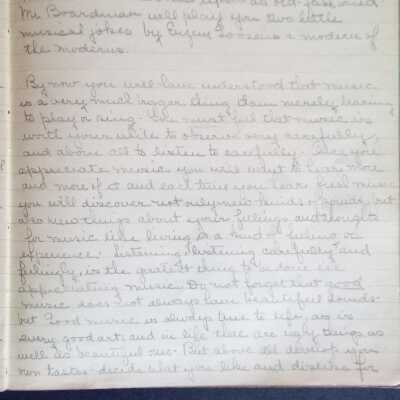 Mr. Boardman will play you two little
musical jokes by Eugene Goossens a modern of
the moderns.
By now you will have understood that music
is a very much bigger thing than merely learning
to play or sing. You must feel that music is
worth your while to observe very carefully,
and above all to listen to carefully. Once you
appreciate music you will want to hear more
and more of it and each time you hear fresh music
you will discover not only new kinds of sounds, but
also new things about your feelings and thoughts
for music like living is a kind of feeling or
experience. Listening, listening carefully and
feelingly, is the greatest thing to be done in
appreciating music. Do not forget that good
music does not always have beautiful sounds.
but Good music is always true to life, as is
every good art, and in life there are ugly things as
well as beautiful ones. But above all develop your
own tastes. decide what you like and dislike for